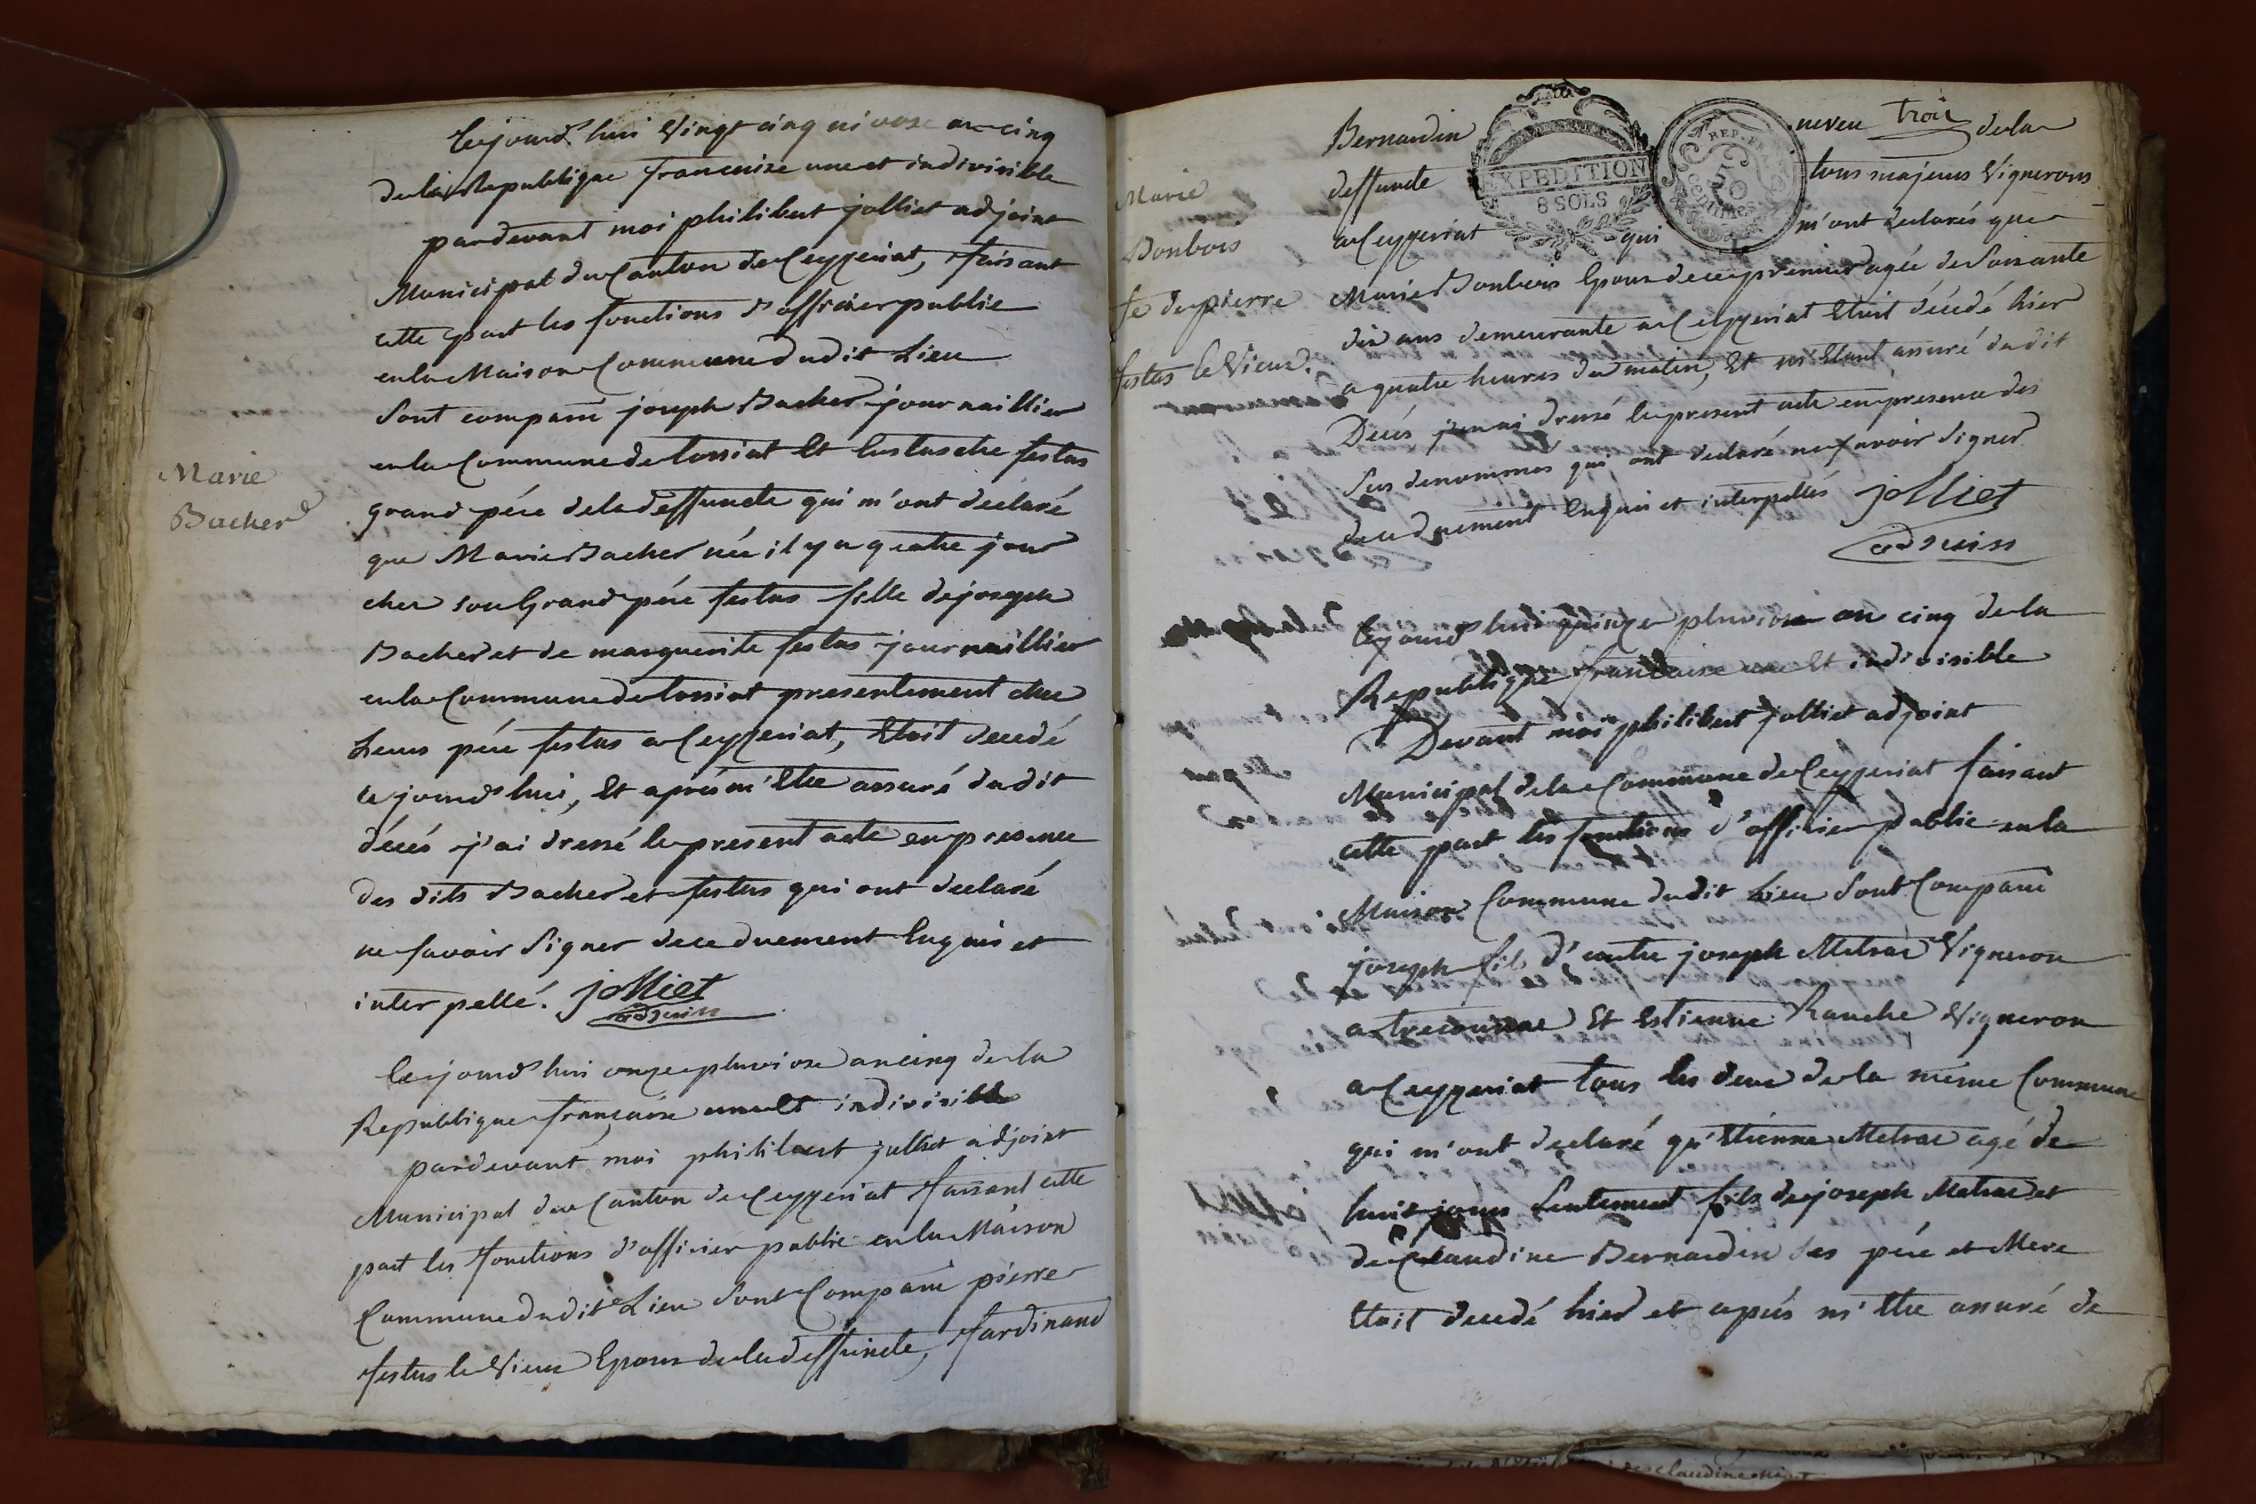 Cejourd'hui vingt cinq nivose an cinq
de la Republique francaise une et indivisible
pardevant moi philibert jolliet adjoint
Municipal du Canton de Ceyzeriat, faisant
cette part les fonctions d'officier public
en la Maison Commune dudit Lieu
Sont comparu joseph Bacher journaillier
en la Commune de tossiat Et Eustache festas
grand pére de la deffuncte qui m'ont declaré
Marie
Bacher
que Marie Bacher née il y a quatre jour
chez son Grand pére festas fille de joseph
Bacher et de marguerite festas journaillier
en la Commune de tossiat presentement chez
Leurs pére festas a Ceyzeriat, Etoit decedé
cejourd'hui, Et aprés m'Etre assuré dudit
décés j'ai dressé le present acte en presence
des dits Bacher et festas qui ont declaré
ne savoir Signer de ce duement Enquis et
interpellé. jolliet
adjoint
Cejourd'hui onze pluviose an cinq de la
Republique française une Et indivisible
pardevant moi philibert jolliet adjoint
Municipal du Canton de Ceyzeriat faisant cette
part les fonctions d'officier public en la Maison
Commune dudit Lieu Sont Comparu pierre
festas le Vieux Epoux de la deffuncte, fardinand
Bernardin neveu trois de la
deffuncte tous majeurs Vignerons
a Ceyzeriat qui m'ont declarés que
EXPEDITION
8 SOLS
REP. FRANC
50
centimes
Marie
Donbois
fe de pierre
festas le Vieux.
Marie Donbois Epouse de ce premier agée de Soixante
dix ans demeurante a Ceyzeriat Etoit décédé hier
a quatre heures du matin, Et m'Etant assuré dudit
Décés j'en ai dressé le present acte en presence des
Sus denommes qui ont declaré ne savoir Signer
de ce duement Enquis et interpellés jolliet
adjoint
Cejourd'hui quinze pluviose an cinq de la
Republique francaise une Et indivisible
Devant moi philibert jolliet adjoint
Municipal de la Commune de Ceyzeriat faisant
cette part les fonctions d'officier public en la
Maison Commune dudit Lieu Sont Comparu
joseph fils d'autre joseph Metrae Vigneron
a treconnas Et Estienne Ranche Vigneron
a Ceyzeriat tous les deux de la même Commune
qui m'ont declaré qu'Etienne Metrae agé de
huit jours Seulement fils de joseph Metrae et
de Claudine Bernardin Ses pére et Mere
Etoit decedé hier et aprés m'Etre assuré de